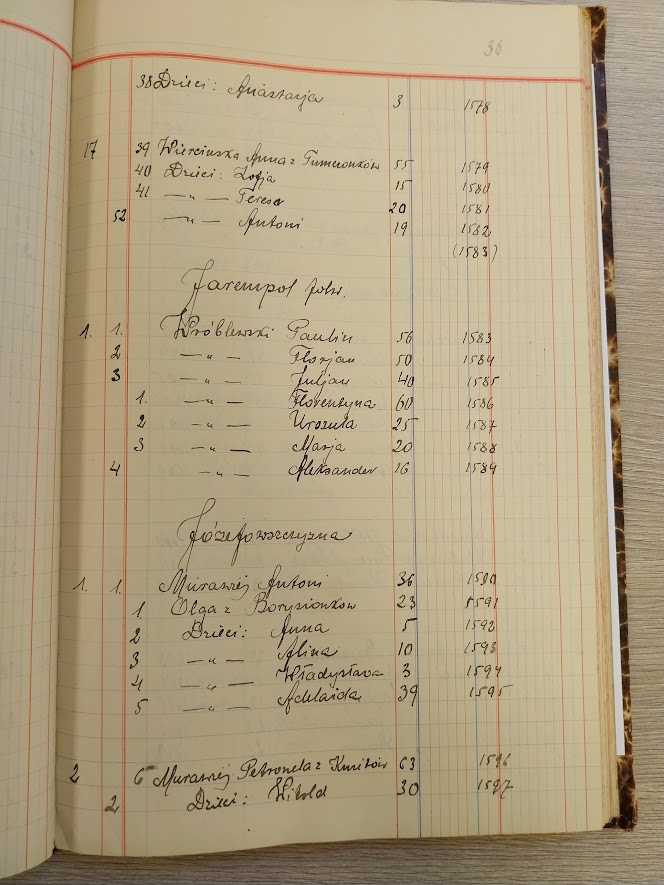 36
38 Dzieci: Anastazja 3 1578
17 39 Wierciuska Anna z Tumeronków 55 1579
40 Dzieci: Zofja 15 1580
41 —„— Teresa 20 1581
52 —„— Antoni 19 1582
(1583)
Jarempol folw.
1. 1. Wróblewski Paulin 56 1583
2 —„— Florjan 50 1584
3 —„— Juljan 40 1585
1. —„— Florentyna 60 1586
2 —„— Urszula 25 1587
3 —„— Marja 20 1588
4 —„— Aleksander 16 1589
Józefowszczyzna
1. 1. Murawiej Antoni 36 1590
1. Olga z Borysionków 23 1591
2 Dzieci: Anna 5 1592
3 —„— Alina 10 1593
4 —„— Władysława 3 1594
5 —„— Adelaida 39 1595
2 6 Murawiej Petronela z Kmitów 63 1596
2 Dzieci: Witold 30 1597